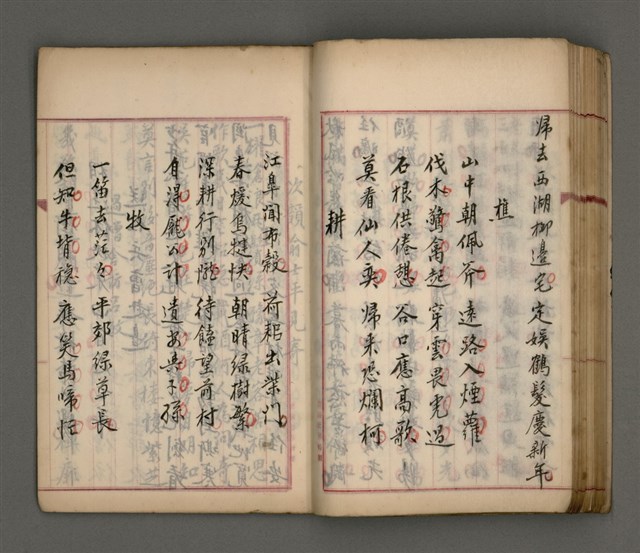 歸去西湖柳邊宅 定娛鶴髮慶新年
樵
山中朝佩斧 遠路入煙蘿
伐木驚禽起 穿雲畏虎過
石根供倦想 谷口應高歌
莫看仙人奕 歸来恐爛柯
耕
江皐聞布穀 荷耜出柴门
春煖烏犍快 朝晴綠樹繁
深耕行別隴 待饁望前村
自得龐公計 遺安與子孫
牧
一笛去茫々 平郊綠草長
但知牛背穩 應笑馬啼忙